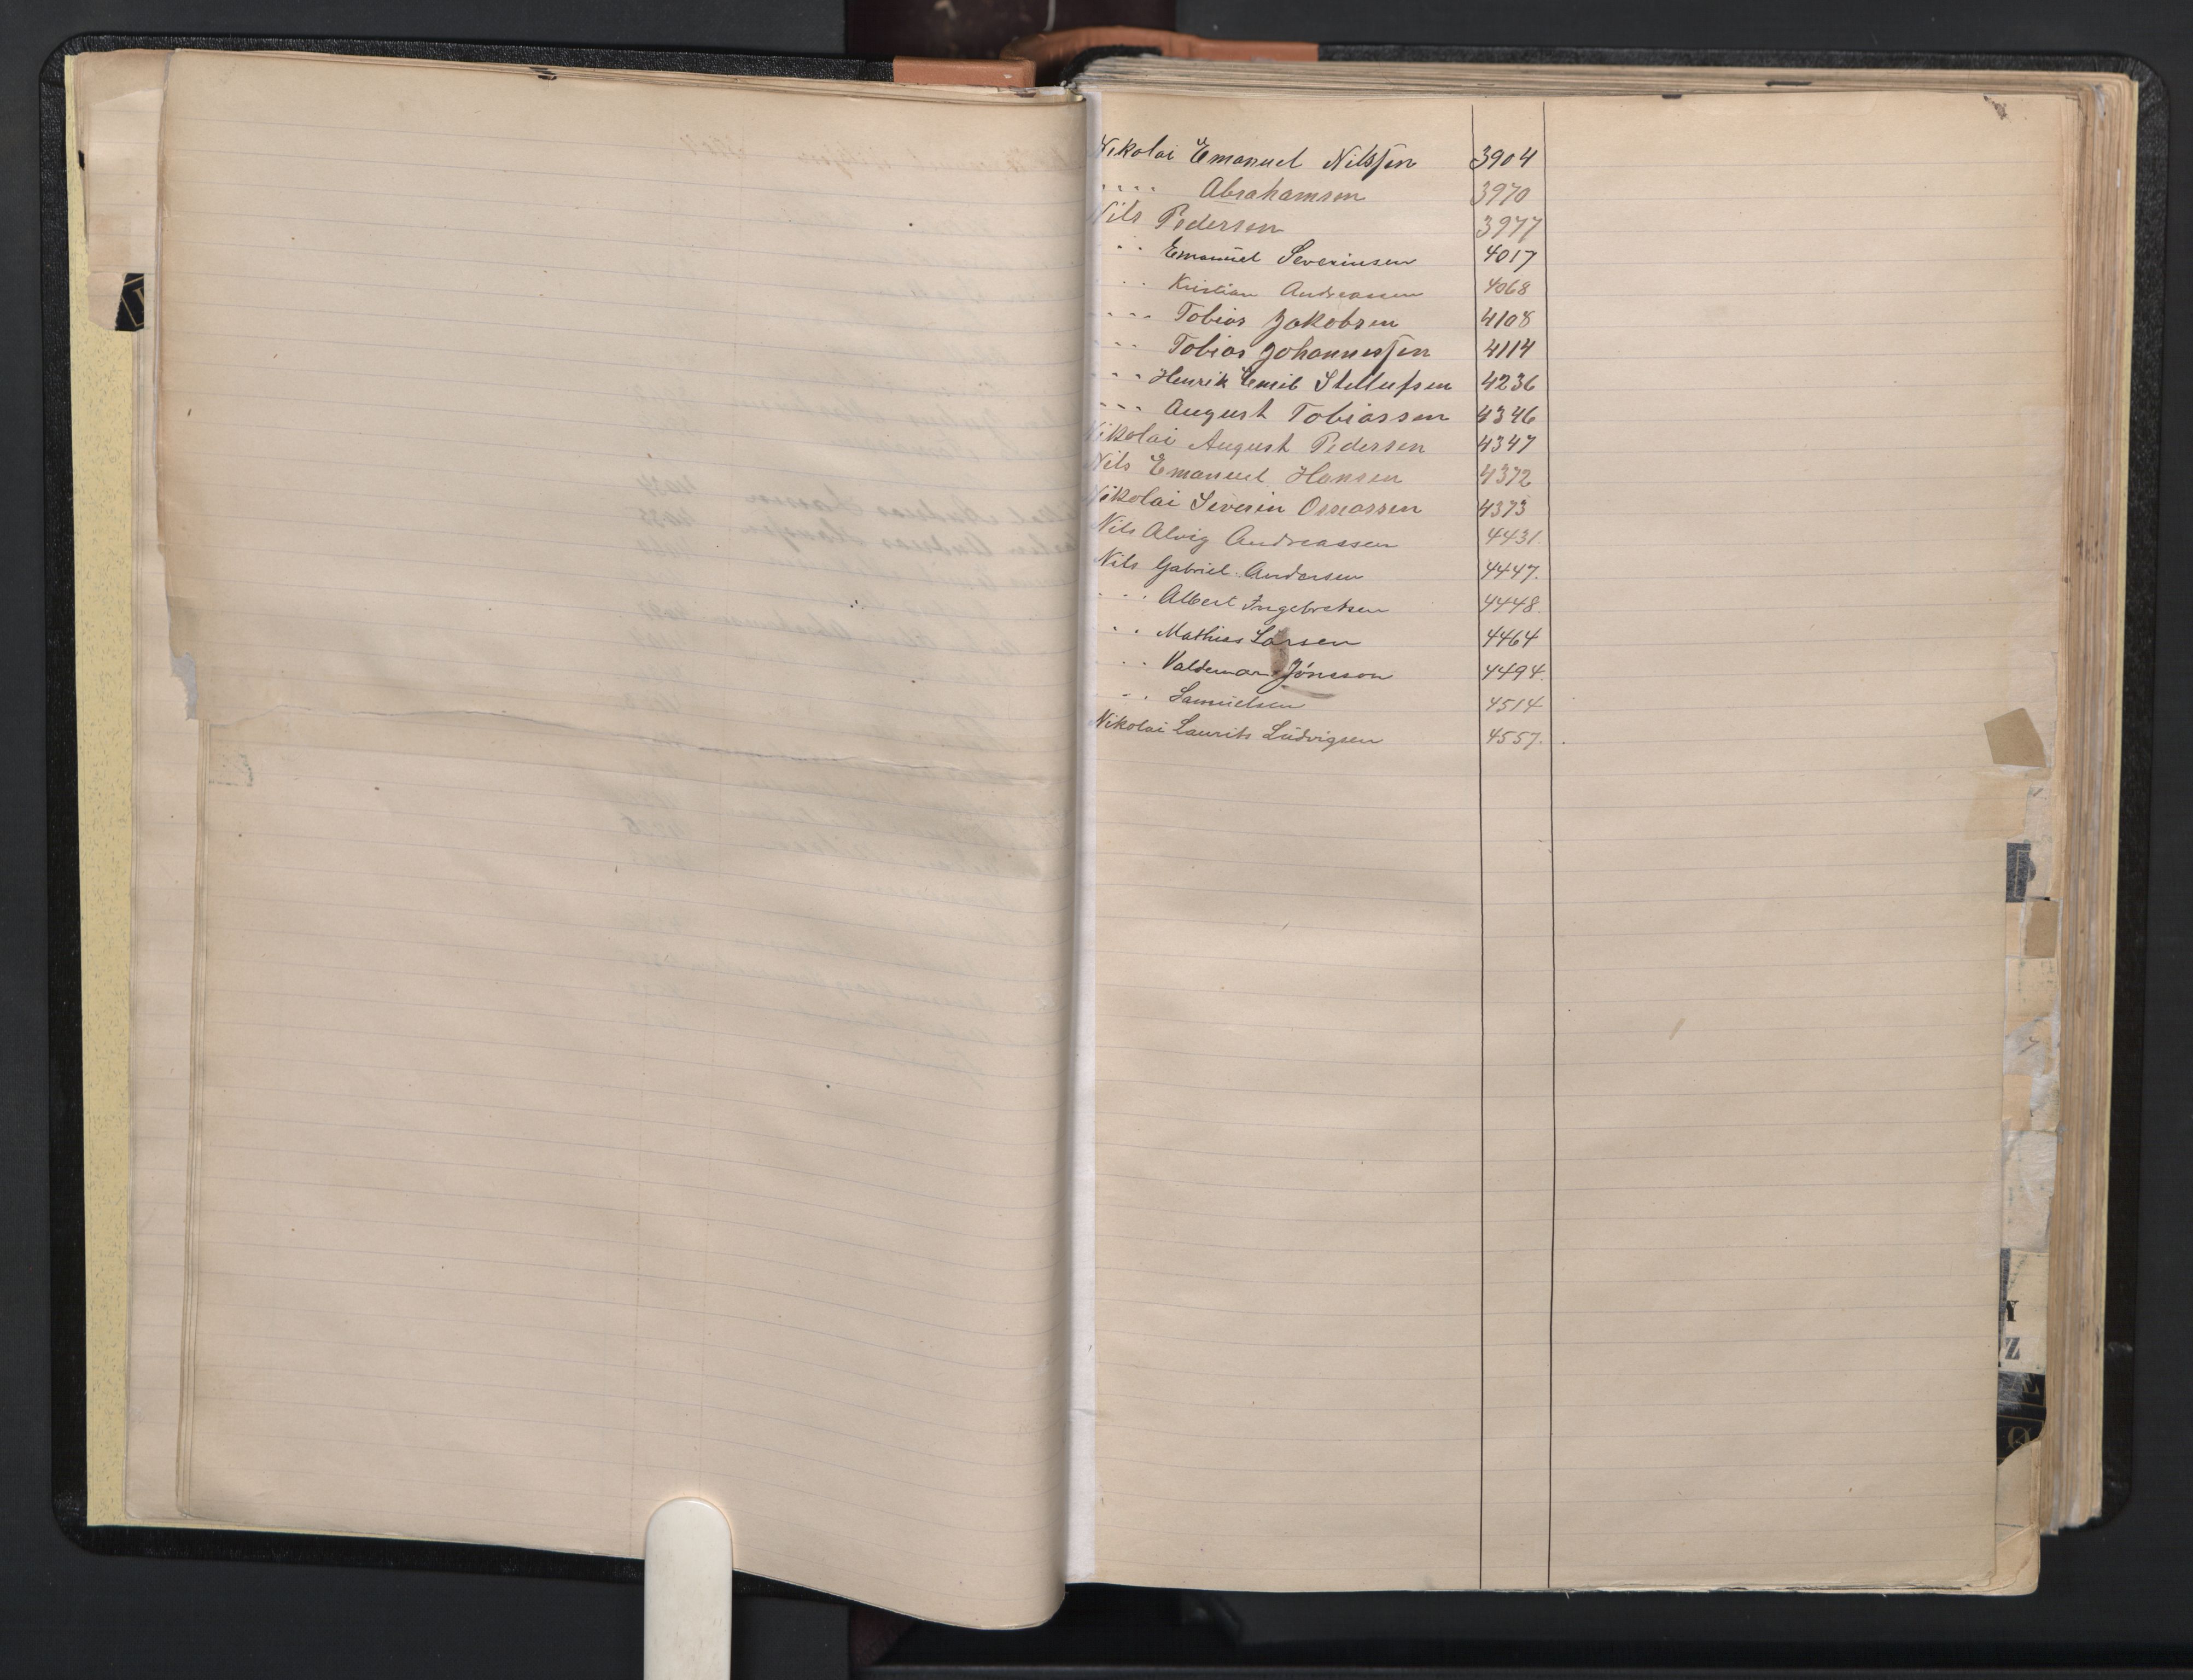 Nikolai Emanuel Nilssen 3904
" " Abrahamsen 3970
Nils Pedersen 3977
" Emanuel Severinsen 4017
" Kristian Andreassen 4068
" " Tobias Jakobsen 4108
" Tobias Johannessen 4114
" Henrik Emil 4236
" " August Tobiassen 4346
Nikolai August Pedersen 4347
Nils Emanuel Hansen 4372
Nikolai Severin 4373
Nils Alvig Andreassen 4431.
Nils Gabriel Andersen 4447.
" " Albert Ingebretsen 4448.
" Mathias Larsen 4464
" Valdemar Jönsson 4494.
" Samuelsen 4514
Nikolai Laurits Ludvigsen 4557.
Y
Z
Ø